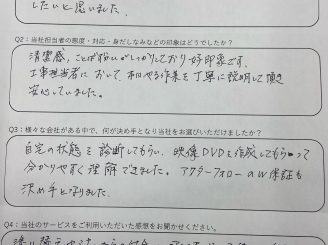 したいと思いました。
Q2：当社担当者の態度・対応・身だしなみなどの印象はどうでしたか？
清潔感、ことば使いがしっかりしており好印象です。
工事担当者において 和やかで作業を丁寧に説明して頂き
安心していました。
Q3：様々な会社がある中で、何が決め手となり当社をお選びいただけましたか？
自宅の状態を診断してもらい、映像DVDを作成してもらって
分かりやすく理解できました。アフターフォローのW保証も
決め手となりました。
Q4：当社のサービスをご利用いただいた感想をお聞かせください。